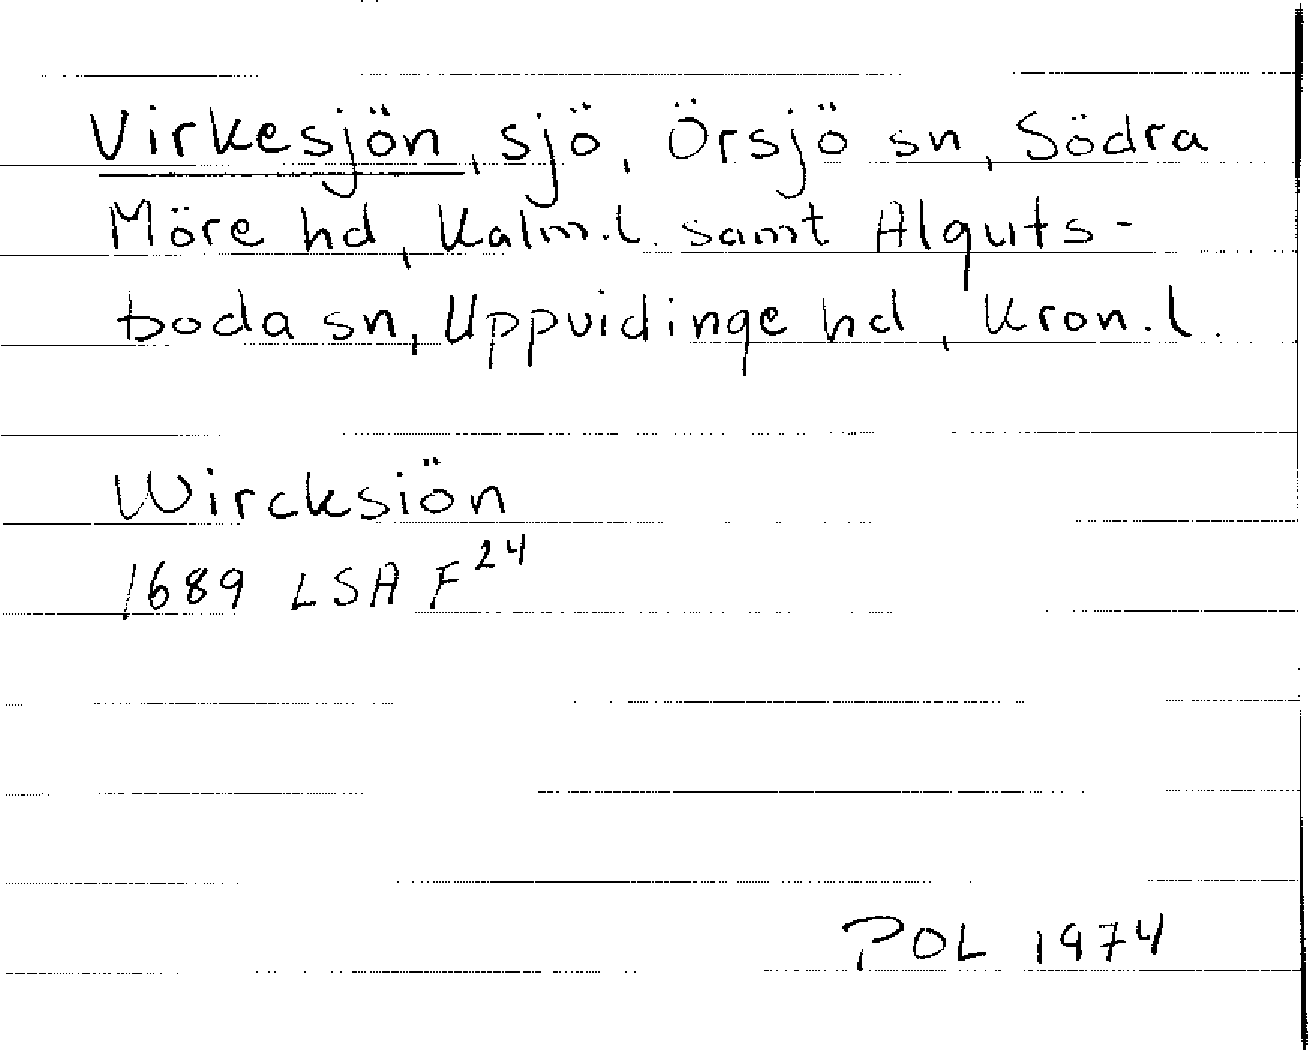 Virkesjön, sjö, Örsjö sn, Södra
Möre hd, Kalm.l. samt Alguts-
boda sn, Uppvidinge hd, Kron.l.
Wircksiön
1689 LSA F24
POL 1974